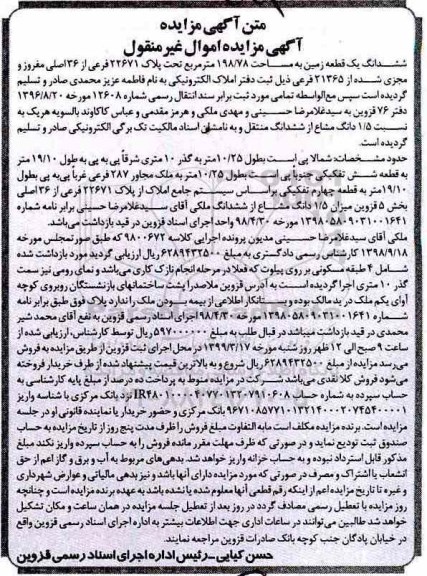 متن آگهی مزایده
آگهی مزایده اموال غیر منقول
ششدانگ یک قطعه زمین به مساحت ۱۹۸/۷۸ مترمربع تحت پلاک ۲۲۶۷۱ فرعی از ۳۶ اصلی مفروز و
مجزی شده از ۲۱۳۶۵ فرعی ذیل ثبت دفتر املاک الکترونیکی به نام فاطمه عزیز محمدی صادر و تسلیم
گردیده است سپس مع‌الواسطه تمامی مورد ثبت برابر سند انتقال رسمی شماره ۱۲۶۰۸ مورخه ۱۳۹۶/۸/۲۰
دفتر ۷۶ قزوین به سیدغلامرضا حسینی و مهدی ملکی و هرمز مقدمی و عباس کاکاوند بالسویه هریک به
نسبت ۱/۵ دانگ مشاع از ششدانگ منتقل و به نامشان اسناد مالکیت تک برگی الکترونیکی صادر و تسلیم
گردیده است.
حدود مشخصات: شمالا پی است بطول ۱۰/۲۵ متر به گذر ۱۰ متری شرقاً پی به پی به طول ۱۹/۱۰ متر
به قطعه شش تفکیکی جنوبا پی است بطول ۱۰/۲۵ متر به ملک مجاور ۲۸۷ فرعی غرباً پی به پی بطول
۱۹/۱۰ متر به قطعه چهارم تفکیکی براساس سیستم جامع املاک از پلاک ۲۲۶۷۱ فرعی از ۳۶ اصلی
بخش ۵ قزوین میزان ۱/۵ دانگ مشاع از ششدانگ ملکی آقای سیدغلامرضا حسینی برابر نامه شماره
۱۳۹۸۰۵۸۰۹۰۳۱۰۰۱۶۴۱ مورخه ۹۸/۴/۳۰ واحد اجرای اسناد قزوین در قید بازداشت می‌باشد.
ملکی آقای سیدغلامرضا حسینی مدیون پرونده اجرایی کلاسه ۹۸۰۰۶۷۲ که طبق صورتمجلس مورخه
۱۳۹۸/۹/۱۸ کارشناس رسمی دادگستری به مبلغ ۶۲۸۹۴۳۲۵۰۰ ریال ارزیابی گردید مورد بازداشت شده
شامل ۴ طبقه مسکونی بر روی پیلوت که فعلا در مرحله انجام نازک کاری می‌باشد و نمای رومی نیز سمت
گذر ۱۰ متری اجرا گردیده است به آدرس قزوین ملاصدرا پشت ساختمانهای بازنشستگان روبروی کوچه
آوای یکم ملک در ید مالک بوده و بستانکار اطلاعی از بیمه بودن ملک را ندارد پلاک فوق طبق برابر نامه
شماره ۱۳۹۸۰۵۸۰۹۰۳۱۰۰۱۶۴۱ مورخه ۹۸/۴/۳۰ اجرای اسناد رسمی قزوین به نفع آقای محمد شیر
محمدی در قید بازداشت میباشد در قبال طلب به مبلغ ۵۹۷۰۰۰۰۰۰ ریال توسط کارشناس، ارزیابی شده از
ساعت ۹ صبح الی ۱۲ ظهر روز شنبه مورخه ۱۳۹۹/۳/۱۷ در محل اجرای ثبت قزوین از طریق مزایده به فروش
می‌رسد مزایده از مبلغ ۶۲۸۹۴۳۲۵۰۰ ریال شروع و به بالاترین قیمت پیشنهاد شده از طرف خریدار فروخته
می‌شود فروش کلا نقدی می‌باشد شرکت در مزایده منوط به پرداخت ده درصد از مبلغ پایه کارشناسی به
حساب سپرده به شماره حساب
نزد بانک مرکزی با شناسه واریز
بانک مرکزی و حضور خریدار یا نماینده قانونی او در جلسه
مزایده است. برنده مزایده مکلف است مابه التفاوت مبلغ فروش را ظرف مدت پنج روز از تاریخ مزایده به حساب
صندوق ثبت تودیع نماید و در صورتی که ظرف مهلت مقرر مانده فروش را به حساب سپرده واریز نکند مبلغ
مذکور قابل استرداد نبوده و به حساب خزانه واریز خواهد شد. بدهی‌های مربوط به آب و برق و گاز اعم از حق
انشعاب یا اشتراک و مصرف در صورتی که مورد مزایده دارای آنها باشد و نیز بدهی مالیاتی و عوارض شهرداری
و غیره تا تاریخ مزایده اعم از اینکه رقم قطعی آنها معلوم شده یا نشده باشد به عهده برنده مزایده است و چنانچه
روز مزایده با تعطیل رسمی مصادف گردد در روز بعد از تعطیل جلسه مزایده در همان ساعت و مکان تشکیل
خواهد شد طالبین می‌توانند در ساعات اداری جهت اطلاعات بیشتر به اداره اجرای اسناد رسمی قزوین واقع
در خیابان پادگان جنب کوچه بانک صادرات قزوین مراجعه نمایند.
حسن کیایی - رئیس اداره اجرای اسناد رسمی قزوین